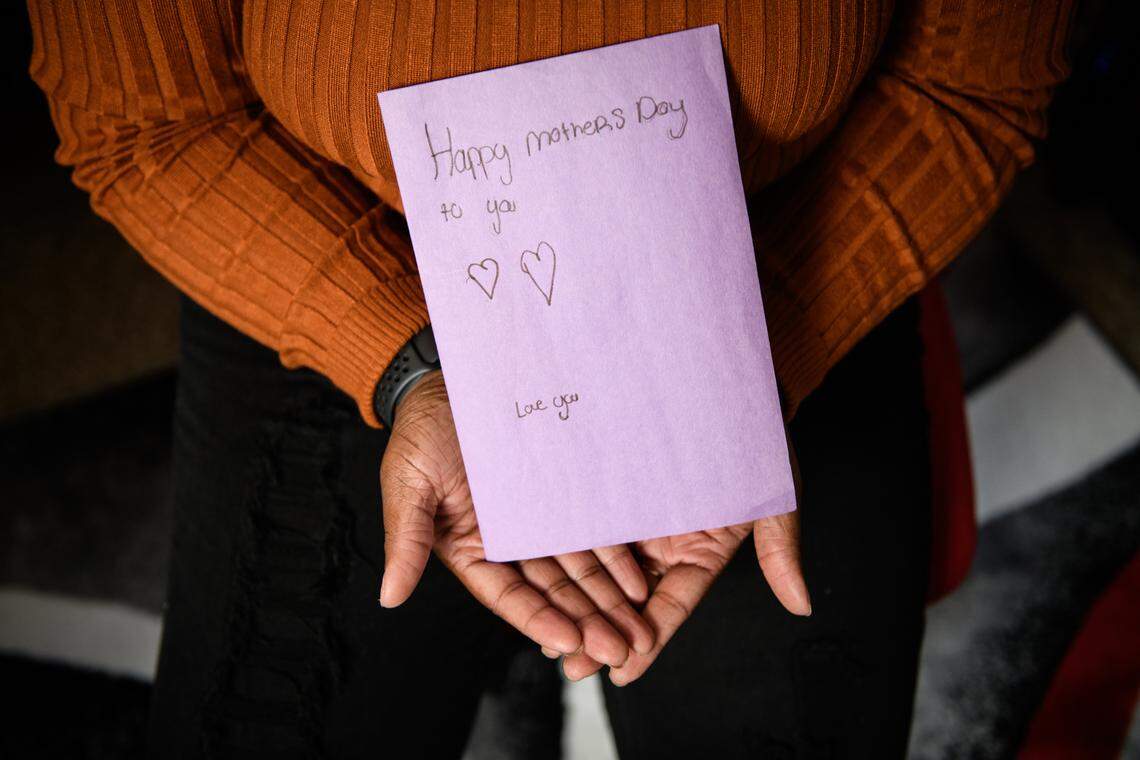 Happy mothers Day
to you
Love you